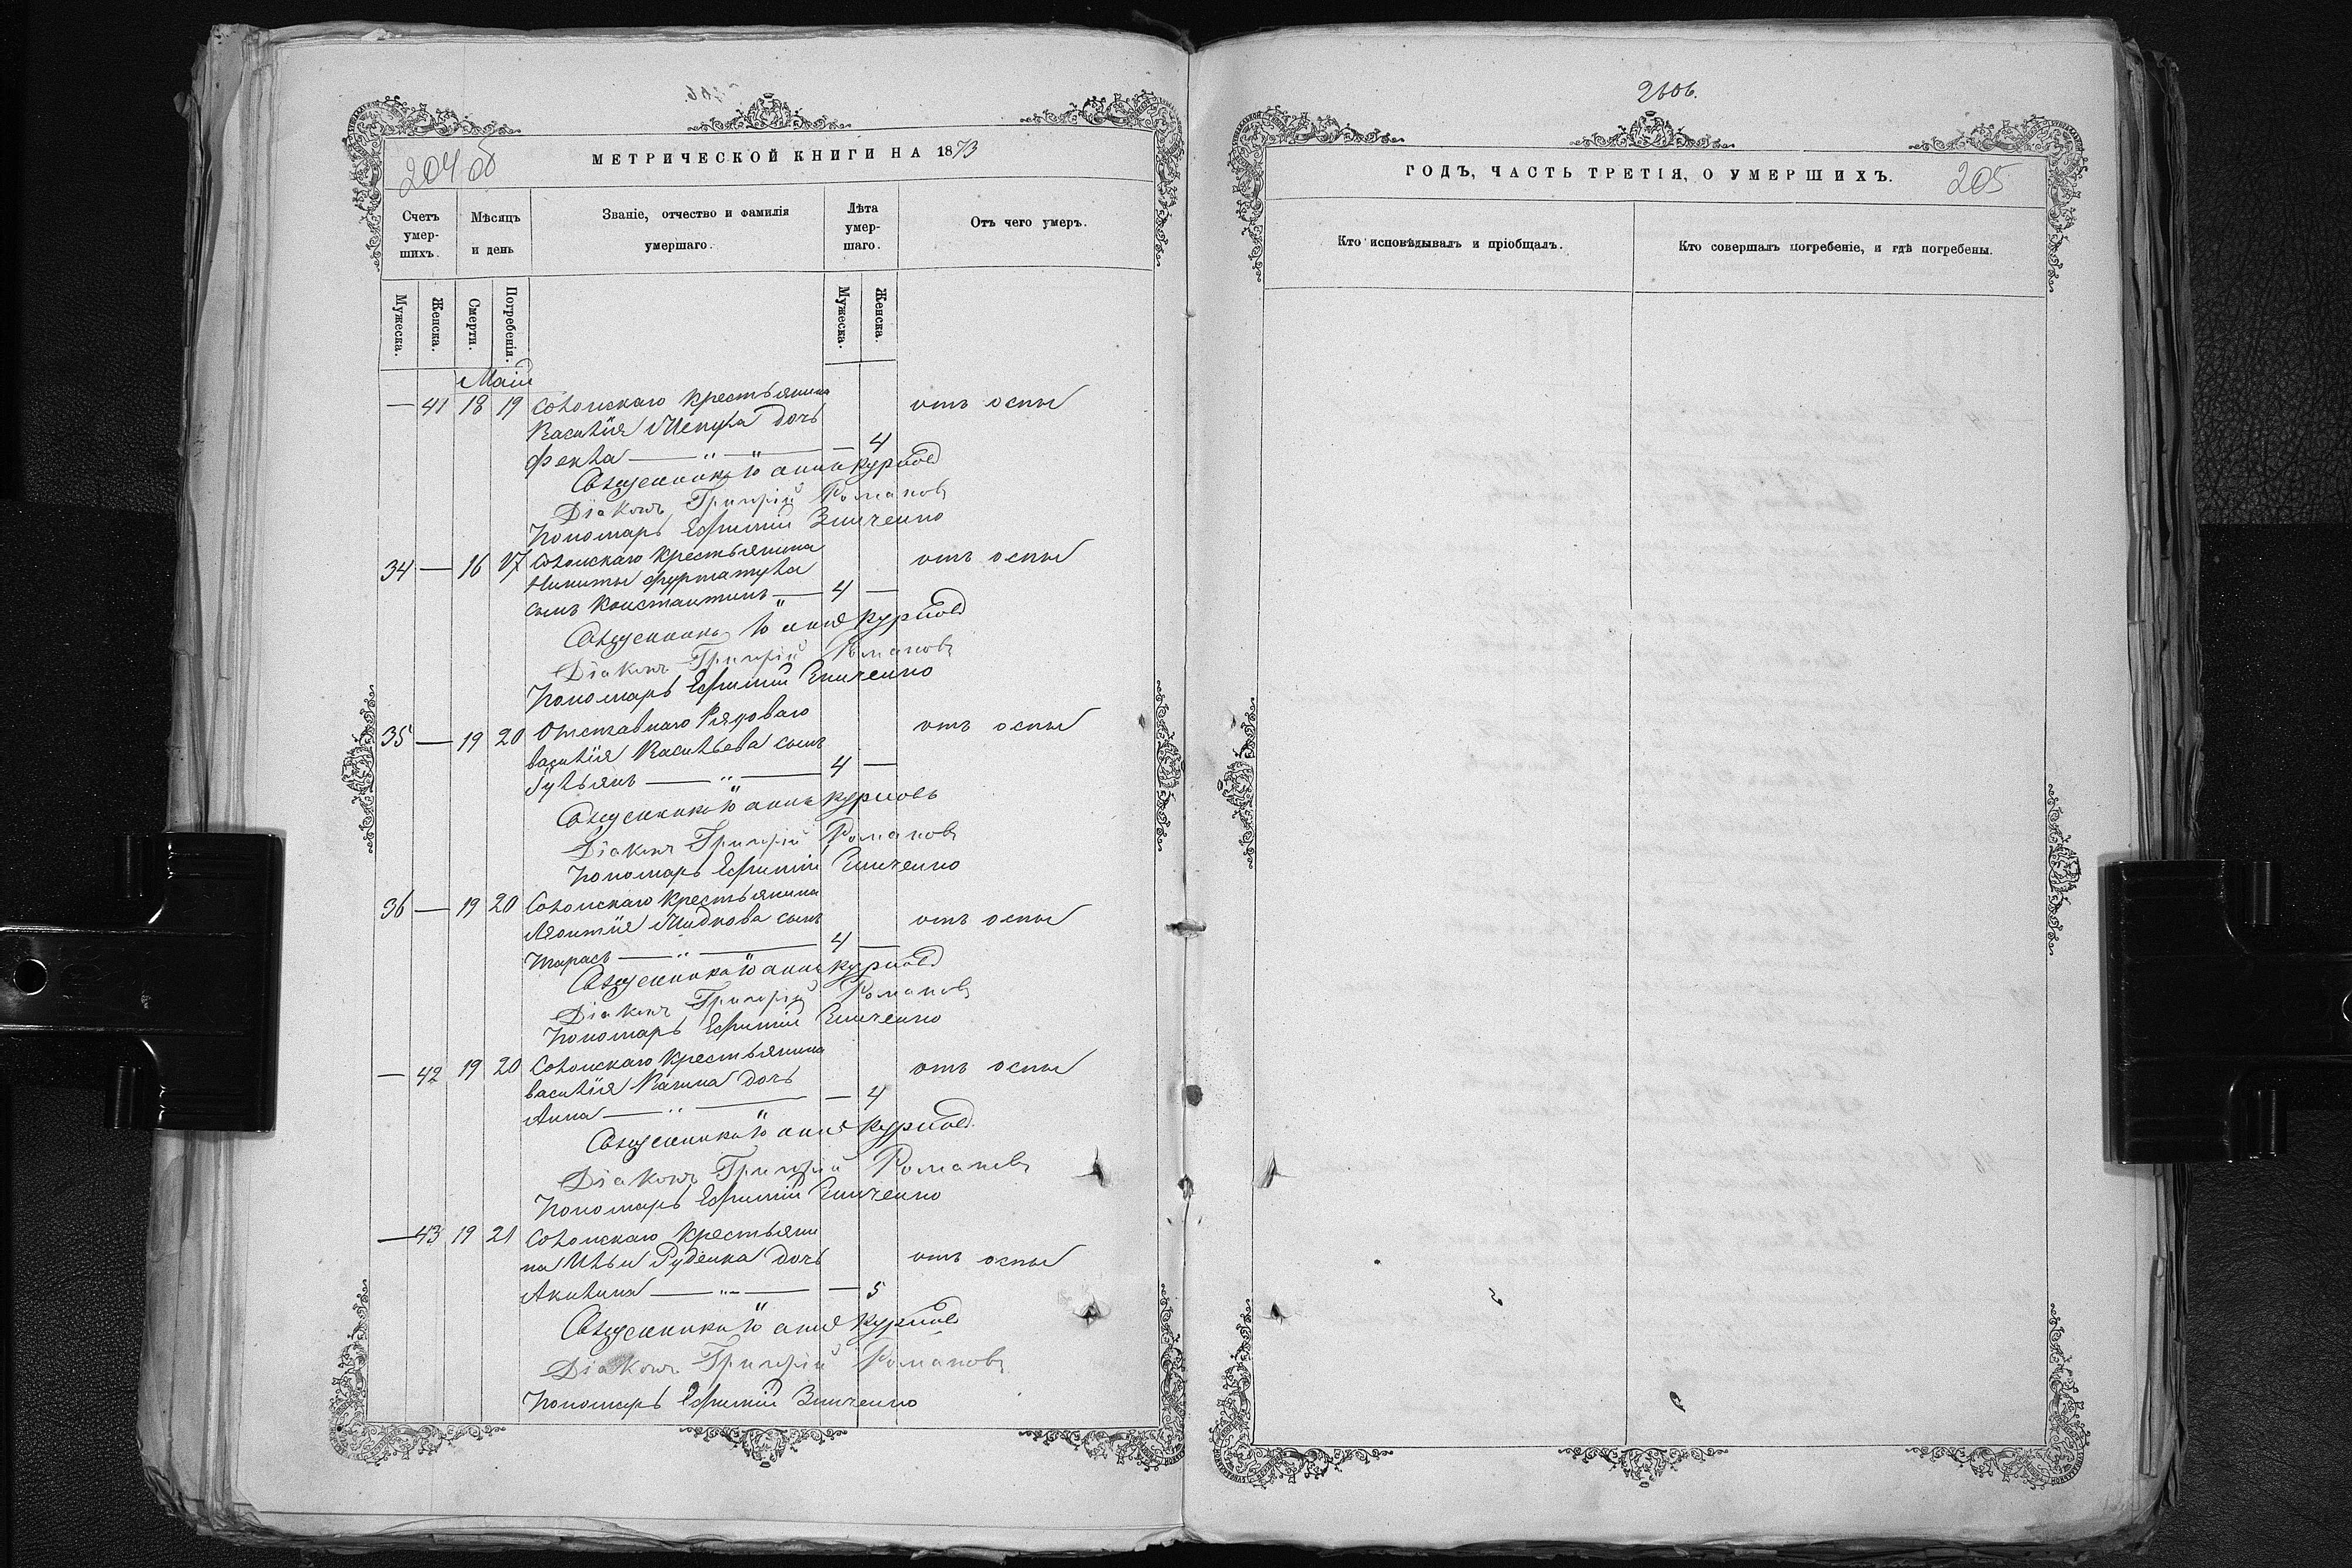 204 об
МЕТРИЧЕСКОЙ КНИГИ НА 1873
Счетъ умер-шихъ.
Мѣсяцъ и день
Званіе, отчество и фамилія умершаго.
Лѣта умер-шаго.
Отъ чего умеръ.
Мужеска.
Женска.
Смерти.
Погребенія.
Мужеска.
Женска.
Маія
— 41 18 19 Соломскаго крестьянина отъ оспы
Василія дочь
Фекла — „ — — 4
Священникъ Іоаннъ Курилов
Діаконъ Григорій Романовъ
Пономарь Ефимій Зинченко
34 — 16 17 Соломскаго крестьянина отъ оспы
Никиты
сынъ Константинъ — 4 —
Священникъ Іоаннъ Курилов
Діаконъ Григорій Романовъ
Пономарь Ефимій Зинченко
35 — 19 20 Отставнаго Рядоваго отъ оспы
Василія Васильева сынъ
— „ — 4 —
Священникъ Іоаннъ Куриловъ
Діаконъ Григорій Романовъ
Пономарь Ефимій Зинченко
36 — 19 20 Соломскаго крестьянина
Леонтія сынъ отъ оспы
Тарасъ — „ — 4 —
Священникъ Іоаннъ Курилов
Діаконъ Григорій Романовъ
Пономарь Ефимій Зинченко
— 42 19 20 Соломскаго крестьянина отъ оспы
Василія дочь
Анна — „ — — 4
Священникъ Іоаннъ Курилов
Діаконъ Григорій Романовъ
Пономарь Ефимій Зинченко
— 43 19 21 Соломскаго крестьяни
на Ильи Руденка дочь отъ оспы
Акилина — „ — — 5
Священникъ Іоаннъ Курилов
Діаконъ Григорій Романовъ
Пономарь Ефимій Зинченко
2606.
ГОДЪ, ЧАСТЬ ТРЕТІЯ, О УМЕРШИХЪ.
205
Кто исповѣдывалъ и пріобщалъ.
Кто совершалъ погребеніе, и гдѣ погребены.